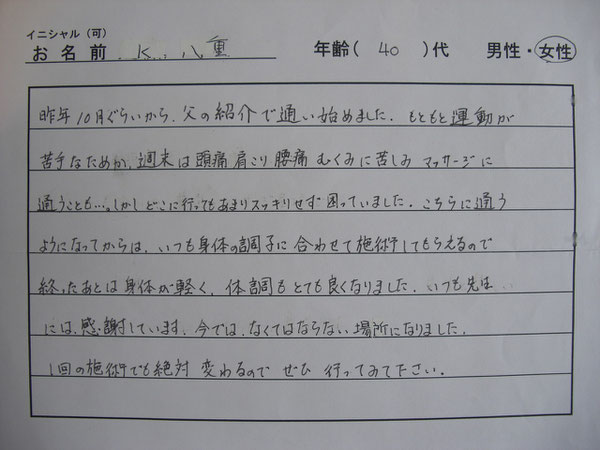 イニシャル（可）
お名前 K. 八重 年齢( 40 )代 男性・女性
昨年10月ぐらいから、父の紹介で通い始めました。もともと運動が
苦手なためか、週末は頭痛 肩こり 腰痛 むくみに苦しみ マッサージに
通うことも…。しかし どこに行ってもあまりスッキリせず 困っていました。こちらに通う
ようになってからは、いつも身体の調子に合わせて施術してもらえるので
終ったあとは身体が軽く、体調もとても良くなりました。いつも先生
には、感謝しています。今では、なくてはならない場所になりました。
1回の施術でも絶対 変わるので ぜひ 行ってみて下さい。